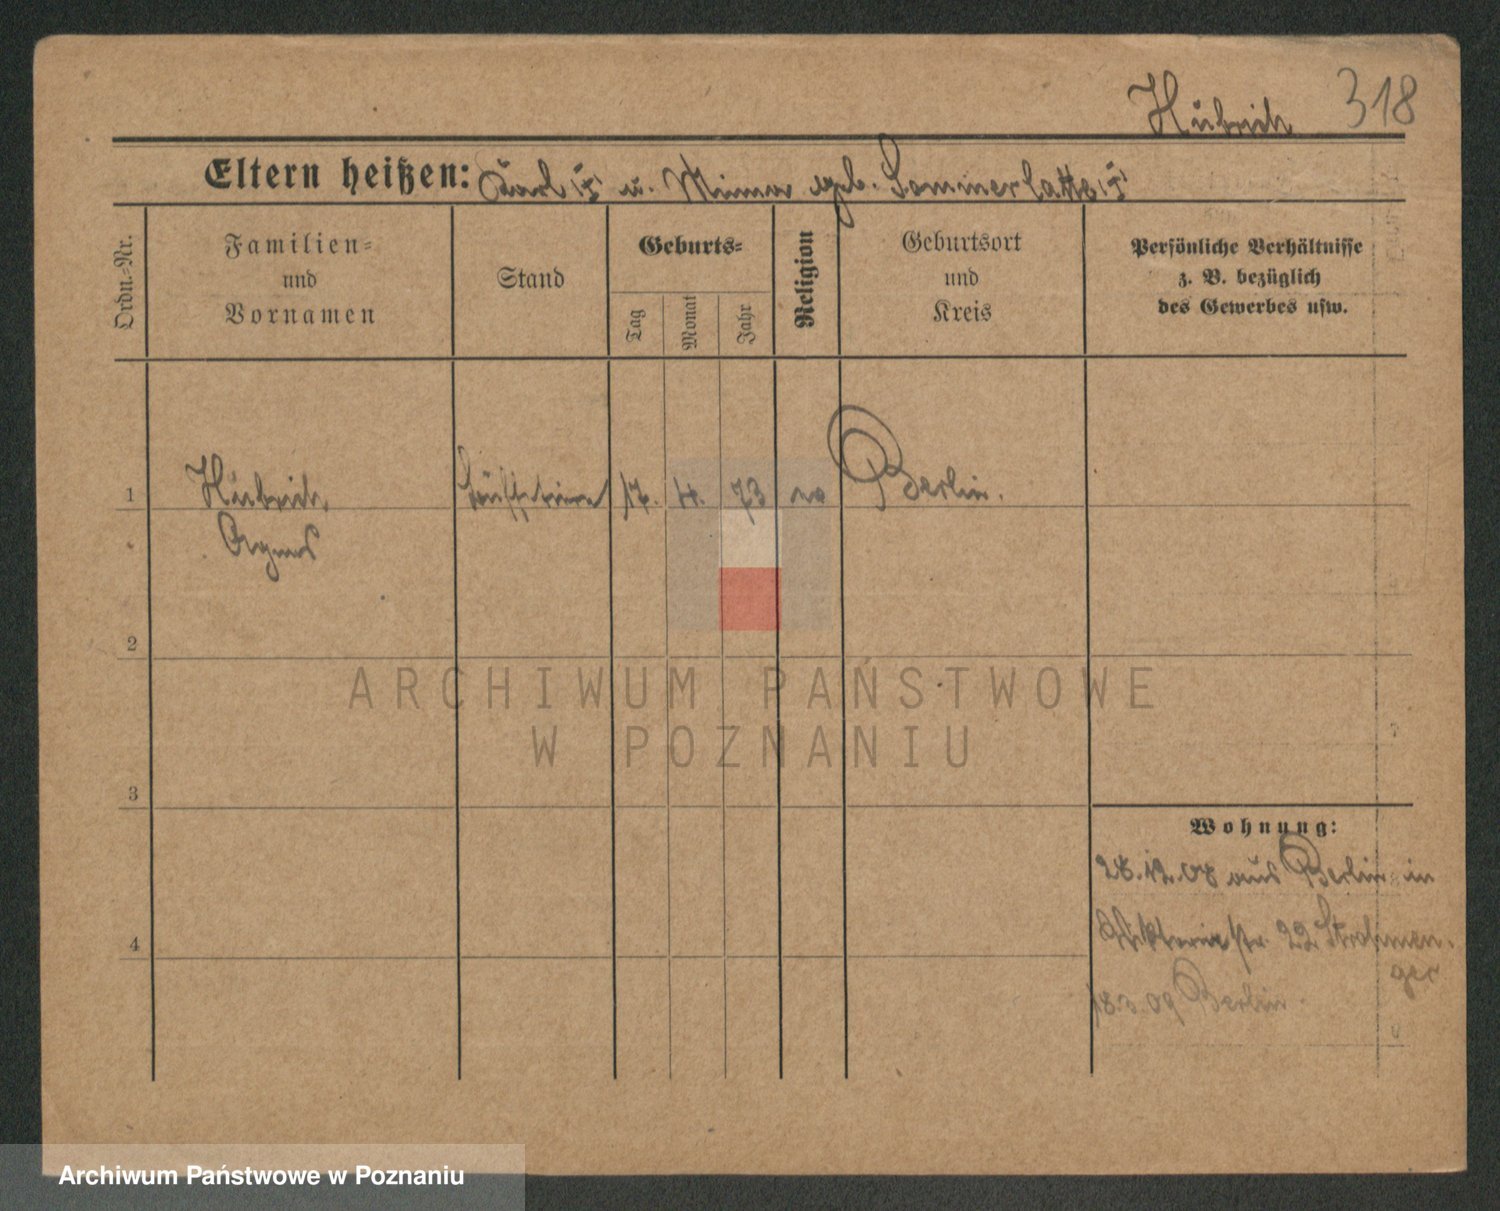 Hübrich 318
Eltern heißen: Karl († u. Minna geb. Sommerlatte (†)
Ordn.-Nr.
Familien- und Vornamen
Stand
Geburts-
Tag
Monat
Jahr
Religion
Geburtsort und Kreis
Persönliche Verhältnisse
z. B. bezüglich
des Gewerbes usw.
1 Hübrich, 17. 4. 73 Berlin.
Agnes
2
3
4
Wohnung:
28.12.08 aus Berlin in
22 Strohmen-
ger
18.3.09 Berlin
ARCHIWUM PAŃSTWOWE
W POZNANIU
Archiwum Państwowe w Poznaniu